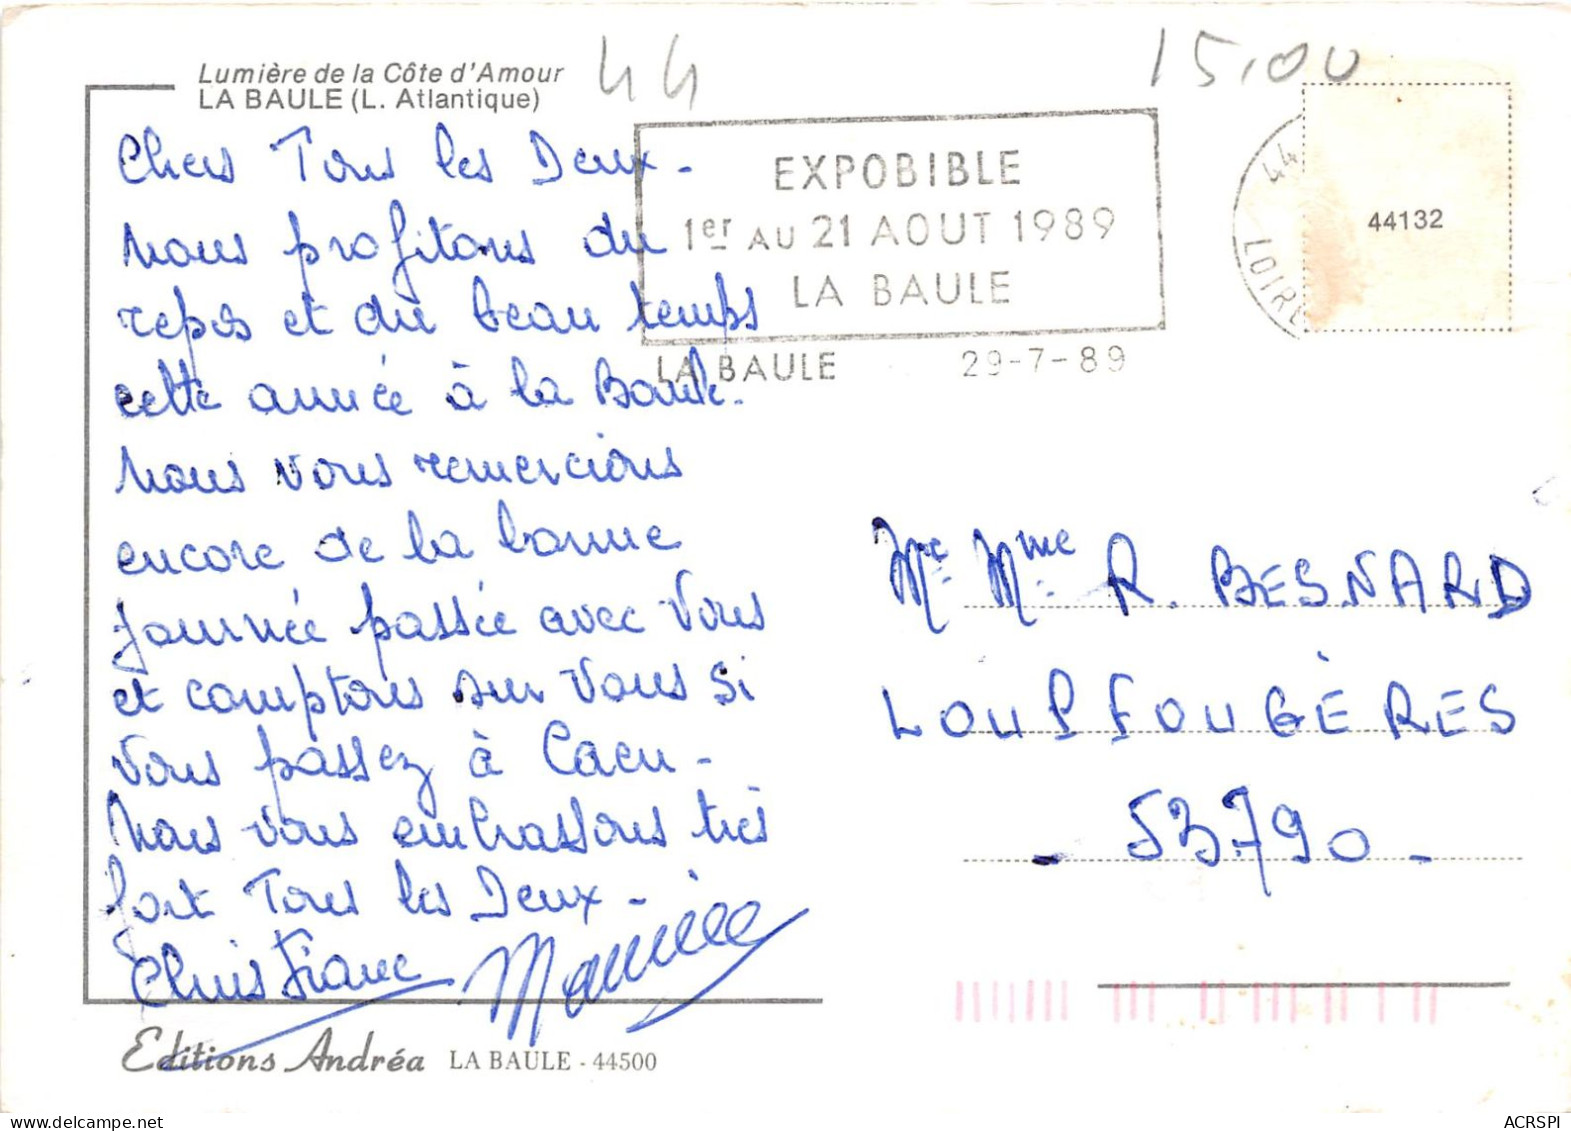 Lumière de la Côte d'Amour
LA BAULE (L. Atlantique)
44
15,00
Chers Tous les Deux -
Nous profitons du
repos et du beau temps
cette année à la Baule.
Nous vous remercions
encore de la bonne
journée passée avec Vous
et comptons sur Vous si
Vous passez à Caen -
Nous vous embrassons très
fort Tous les Deux -
Christiane Maurice
Editions Andréa LA BAULE - 44500
EXPOBIBLE
1er AU 21 AOUT 1989
LA BAULE
LA BAULE 29-7-89
44
LOIRE
44132
Mr Mme R. BESNARD
LOUPFOUGÈRES
- 53790 -
ACRSPI